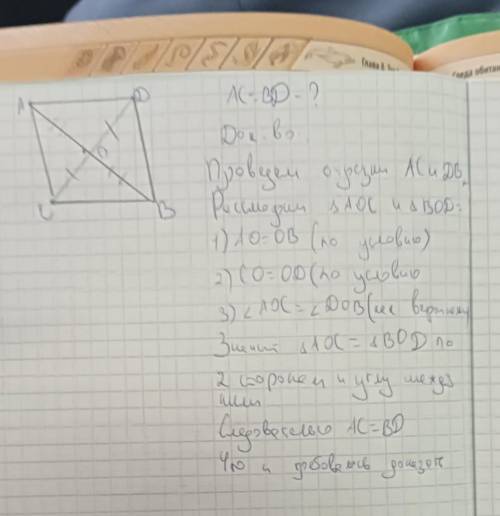 Глава 8.
Среда обитан
A
D
AC=BD-?
O
Док-во
Проведем отрезки AC и DB.
C
B
Рассмотрим △AOC и △BOD:
1) AO=OB (по условию)
2) CO=OD (по условию
3) ∠AOC=∠DOB (как вертикал
Значит △AOC=△BOD по
2 сторонам и углу между
ними
Следовательно AC=BD
Что и требовалось доказать